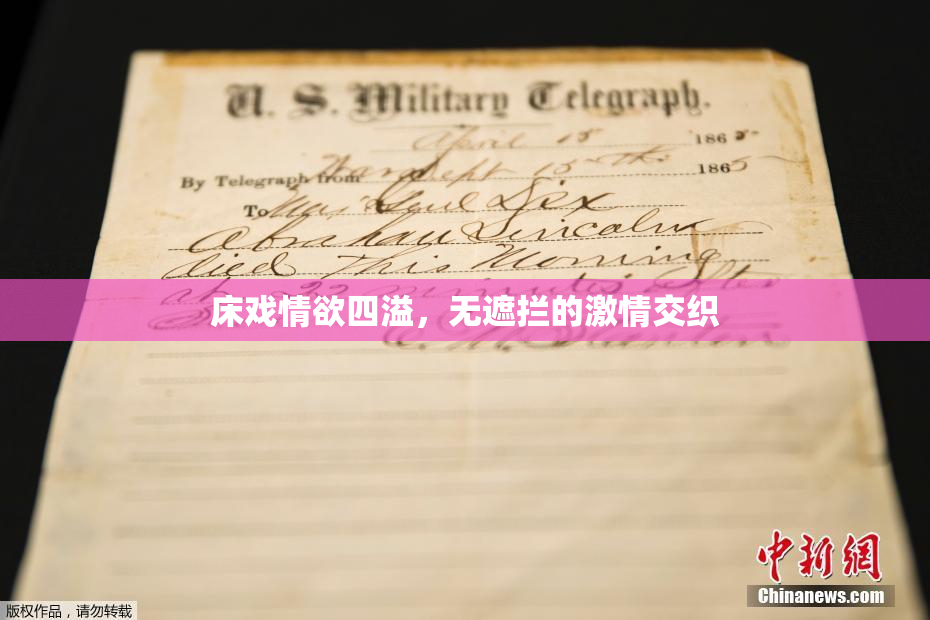 U. S. Military Telegraph.
April 15 1865
By Telegraph from War Dept 15th 1865
To Maj Genl Dix
Abraham Lincoln
died This Morning
at 22 minutes after
床戏情欲四溢，无遮拦的激情交织
E. M. Stanton
中新网
Chinanews.com
版权作品，请勿转载